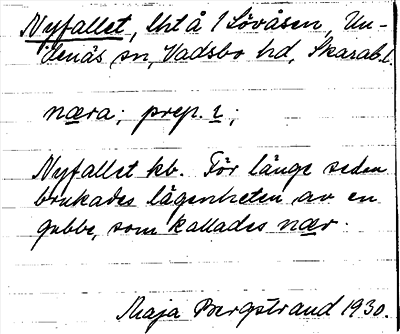 Nyfallet, lht å 1 Lövåsen, Un-
denäs sn, Vadsbo hd, Skarab. l.
næra; prep. i;
Nyfallet kb. För länge sedan
brukades lägenheten av en
gubbe, som kallades nær.
Maja Bergstrand 1930.